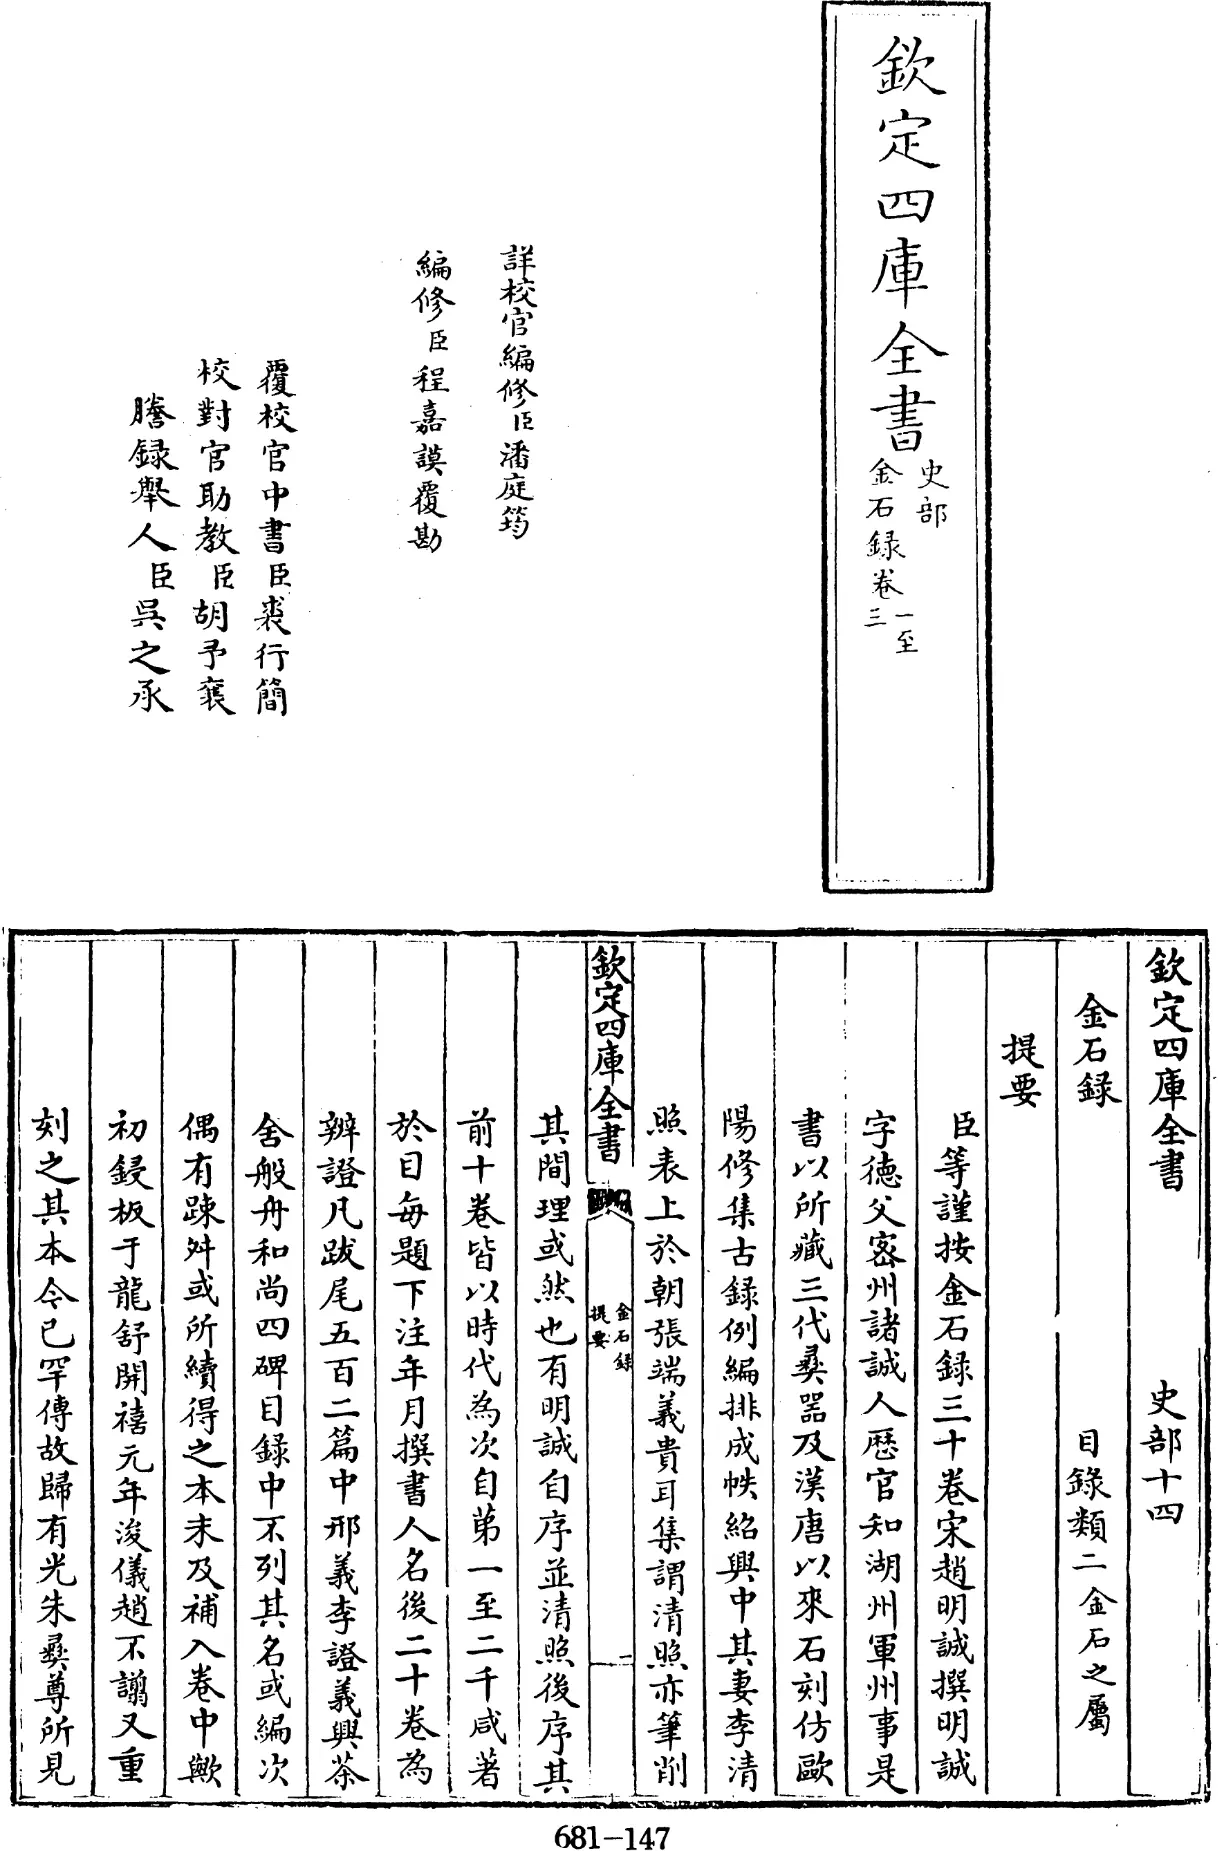 欽定四庫全書
史部
金石録卷一至三
詳校官編修臣潘庭筠
編修臣程嘉謨覆勘
覆校官中書臣裘行簡
校對官助教臣胡予襄
謄録舉人臣吳之承
欽定四庫全書 史部十四
金石録 目錄類二金石之屬
提要
臣等謹按金石錄三十卷宋趙明誠撰明誠
字徳父密州諸誠人歴官知湖州軍州事是
書以所藏三代彛器及漢唐以來石刻仿歐
陽修集古録例編排成帙紹興中其妻李清
照表上於朝張端義貴耳集謂清照亦筆削
欽定四庫全書
金石録
提要
一
其間理或然也有明誠自序並清照後序其
前十卷皆以時代為次自第一至二千咸著
於目每題下注年月撰書人名後二十卷為
辨證凡跋尾五百二篇中邢義李證義興茶
舍般舟和尚四碑目錄中不列其名或編次
偶有踈舛或所續得之本未及補入卷中歟
初鋟板于龍舒開禧元年浚儀趙不譾又重
刻之其本今已罕傳故歸有光朱彞尊所見
681-147